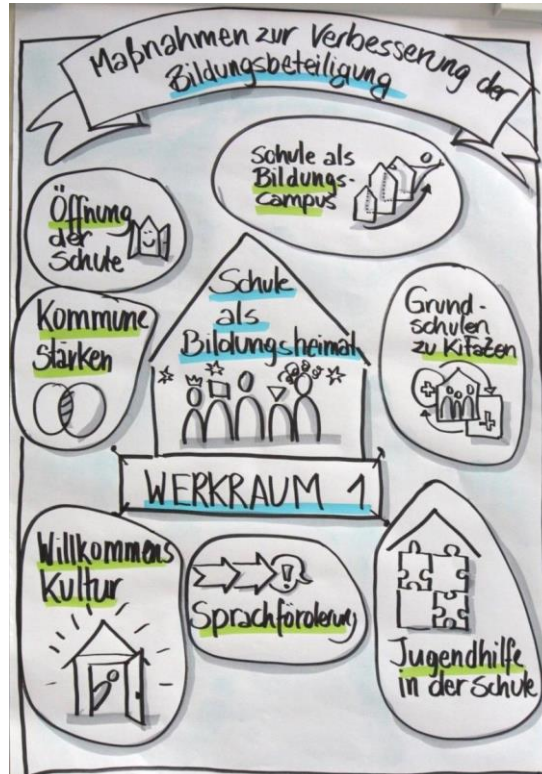 Maßnahmen zur Verbesserung der
Bildungsbeteiligung
Schule als
Bildungs-
campus
Öffnung
der
Schule
Schule
als
Bildungsheimat
Kommune
Stärken
Grund-
schulen
zu KiFaZen
WERKRAUM 1
Willkommens
Kultur
Sprachförderung
Jugendhilfe
in der Schule